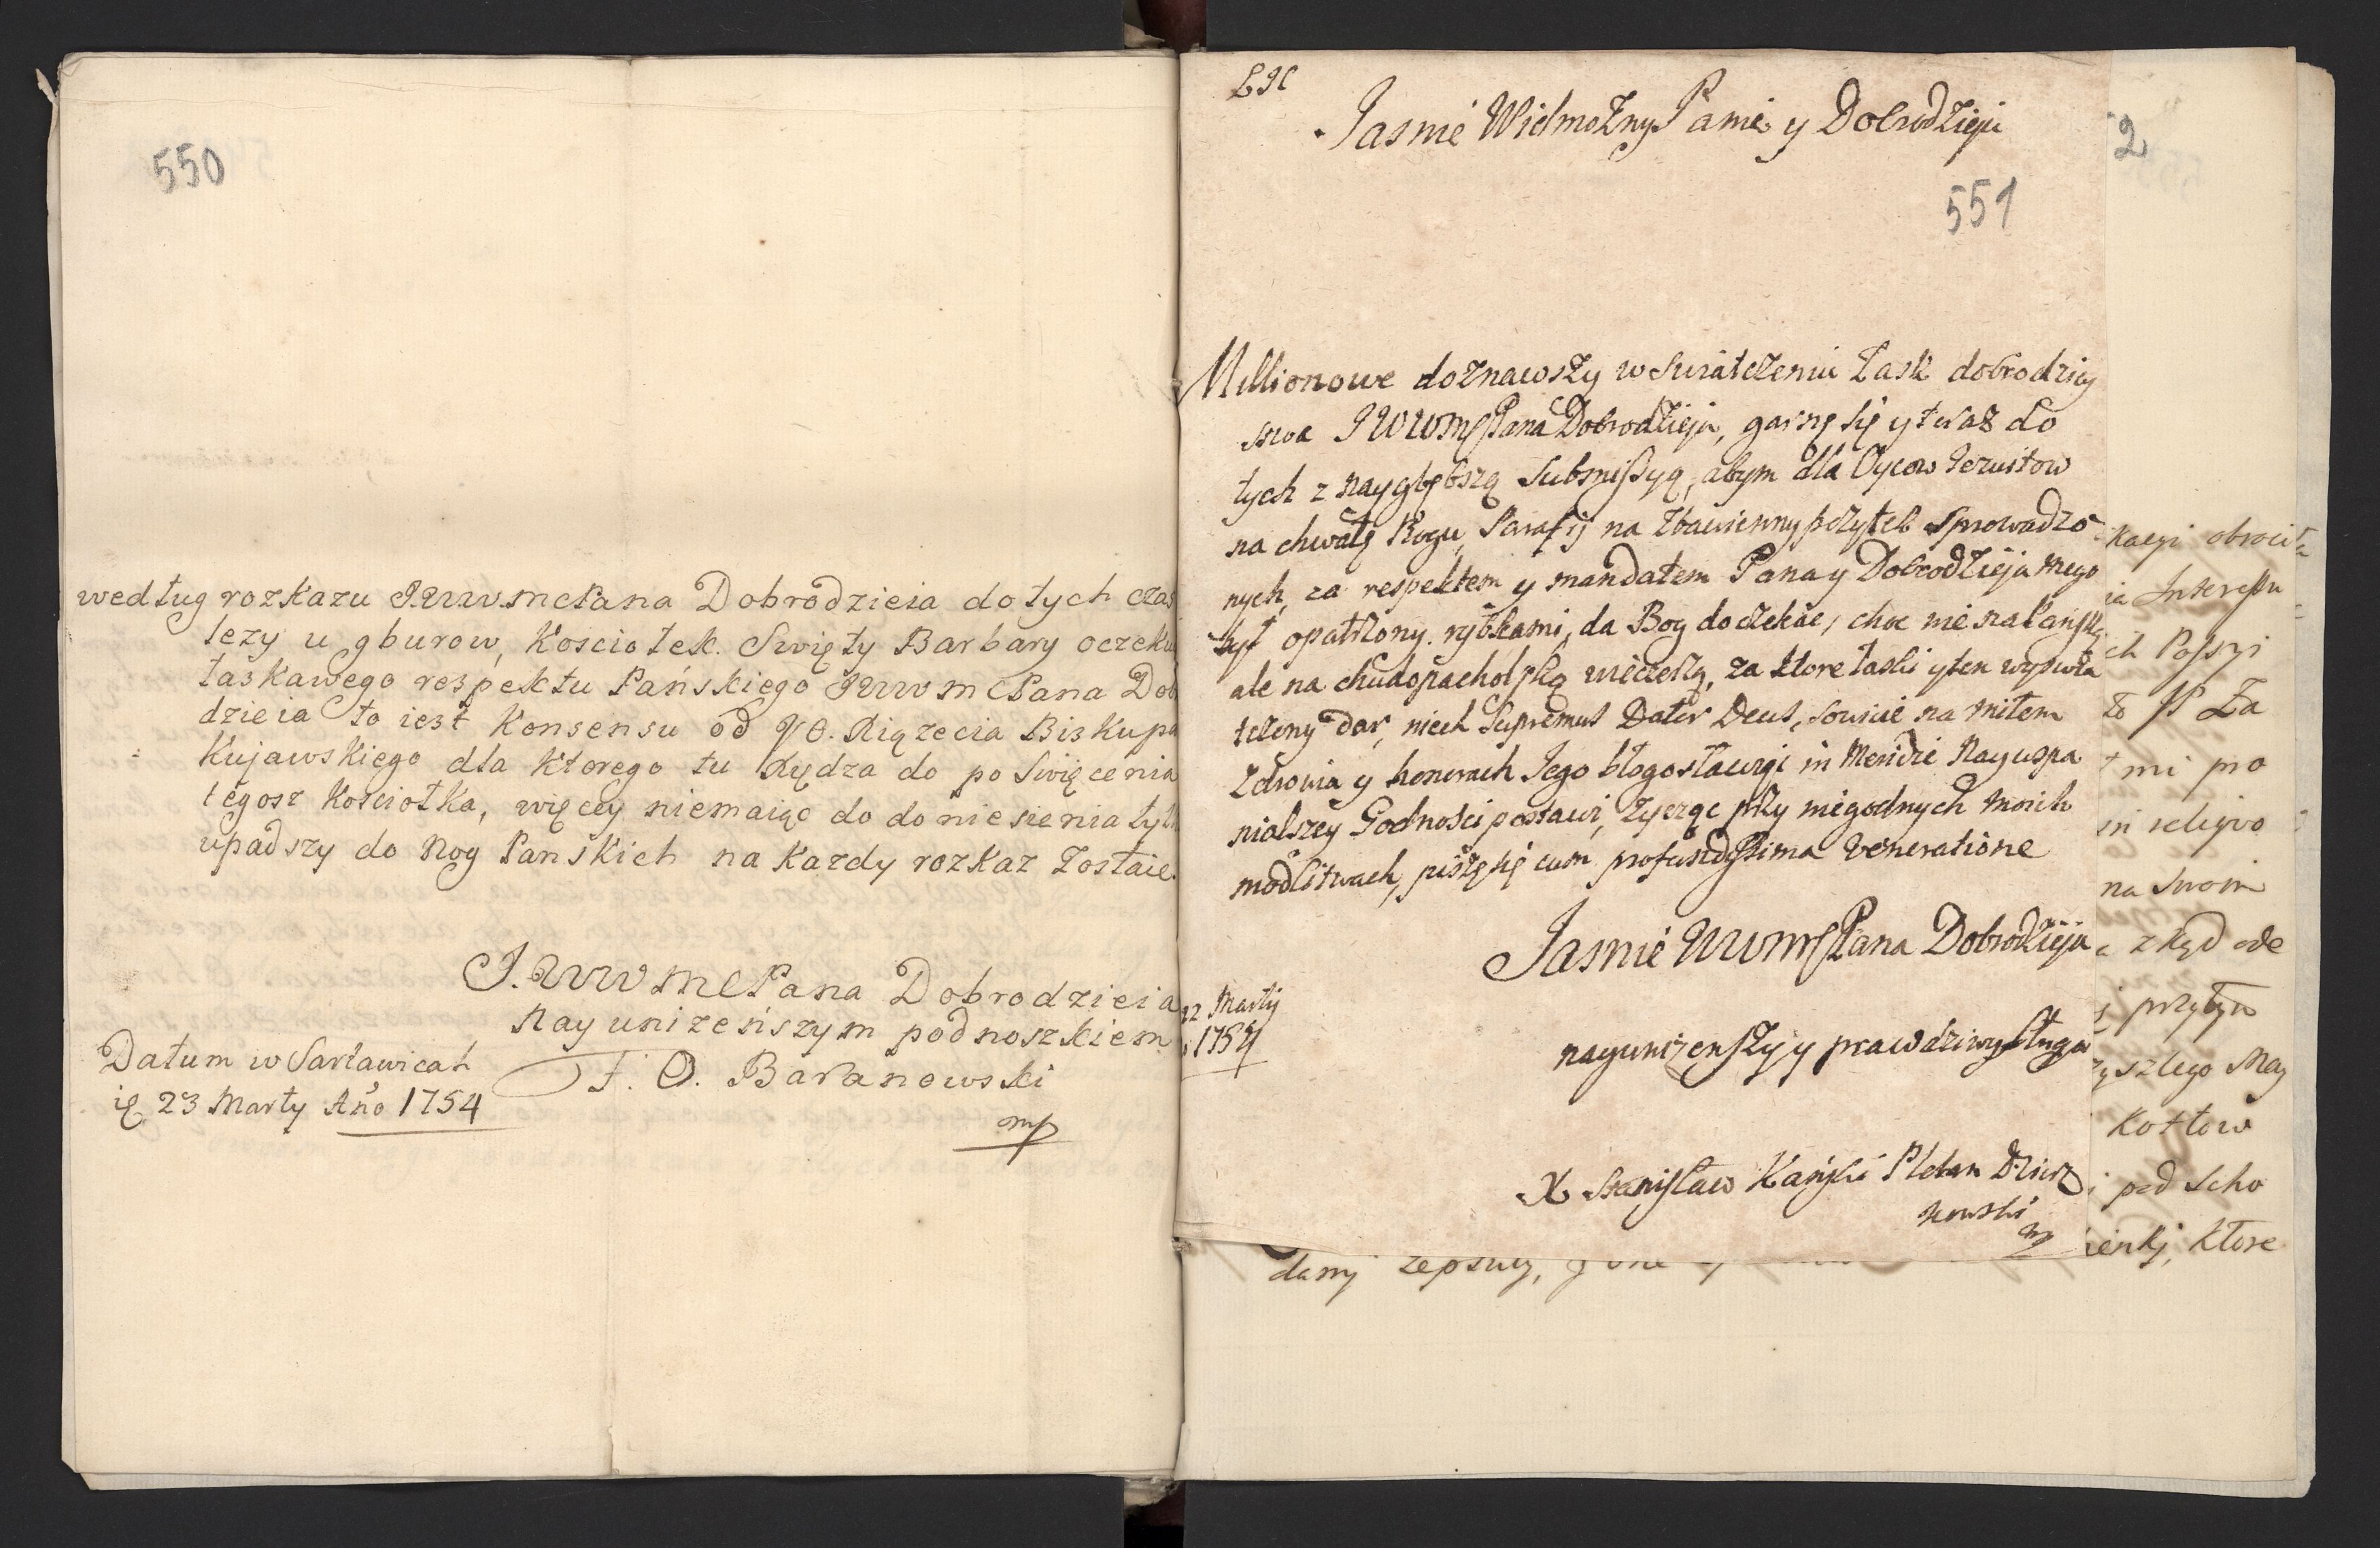 550
według rozkazu JWWMCPana Dobrodzieia do tych czas
lezy u gburow, Kosciołek Swięty Barbary oczeku
łaskawego respektu Pańskiego JWWMCPana Dob
dzieia to iest Konsensu od JO. Xiązecia Biskupa
Kujawskiego dla Ktorego tu Xiędza do po Swięcenia
tegosz Kosciołka, więcey niemaiąc do doniesienia tylk
upadszy do Nog Panskich na Kazdy rozkaz Zostaie.
J.WWMCPana Dobrodzieia
Nayunizeńszym podnoszkiem
F. O. Baranowski
mp
Datum w Sartawicah
23 Marty Año 1754
Jasnie Wielmożny Panie y Dobrodzieju
551
Millionowe doznawszy w Swiatczeniu Łask dobrodziey
stwa JWWMPana Dobrodzieja, garnę się y teraz do
tych z naygłębszą Submissyą, abym dla Oycow Jezuitow
na chwałę Bogu, Parafij na Zbawienny pożytek Sprowadzo
nych, za respektem y mandatem Pana y Dobrodzieja mego
był opatrzony rybkami, da Bog doczekac, choc nie na Pańską
ale na chudopacholską wieczerzą, za ktore łaski y ten wyswia
tczony dar, niech Supremus Dator Deus, sowicie na miłem
Zdrowiu y honorach Jego błogosławi y in Meridie Nayuspa
nialszey Godności postawi, życząc przy niegodnych moich
modlitwach, piszę się cum profundissima Veneratione
Jasnie WWMPana Dobrodzieja
22 Martij
1754
nayunizenszy y prawdziwy Sługa
X Stanisław Kański Pleban Dzierz
kowski
mp
2
kacyi obroci
Interessu
ch Possyi
to JP Za
mi pro
religio
na Swoim
zkąd ode
przytym
szlego May
Kotłow
pod Scho
ienkj, Ktore
dany zepsuty,